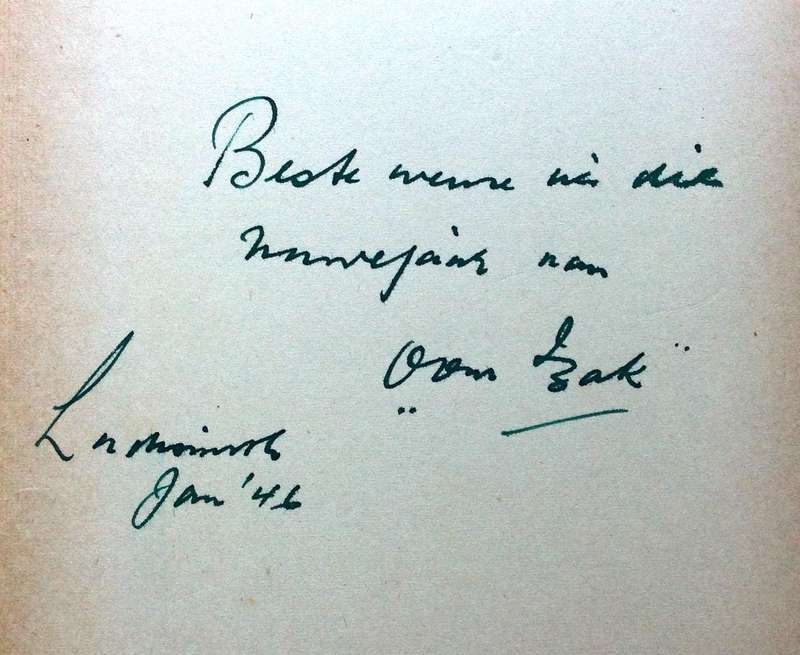 Beste wense vir die
Nuwejaar van
„Oom Izak”
Jan '46